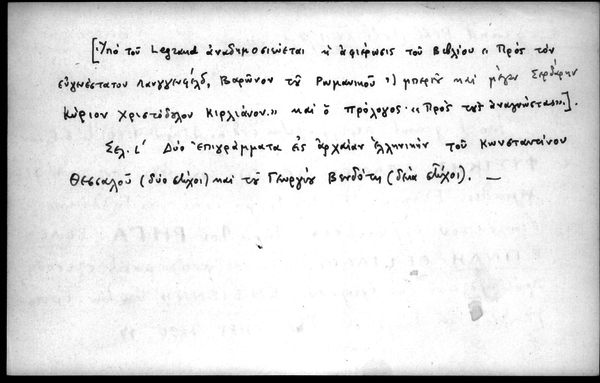 [Ὑπὸ τοῦ Legrand ἀναδημοσιεύεται ἡ ἀφιέρωσις τοῦ Βιβλίου « Πρὸς τὸν
εὐγενέστατον Λαγγενφέλδ, Βαρῶνον τοῦ Ρωμανικοῦ καὶ μέγαν Σερδάρην
Κύριον Χριστόδουλον Κιρλιάνον.» καὶ ὁ πρόλογος· «Πρὸς τοὺς ἀναγνώστας».].
Σελ. ι´ Δύο Ἐπιγράμματα εἰς ἀρχαίαν ἑλληνικὴν τοῦ Κωνσταντίνου
Θεσσαλοῦ (δύο στίχοι) καὶ τοῦ Γεωργίου Βενδότη (δέκα στίχοι). —